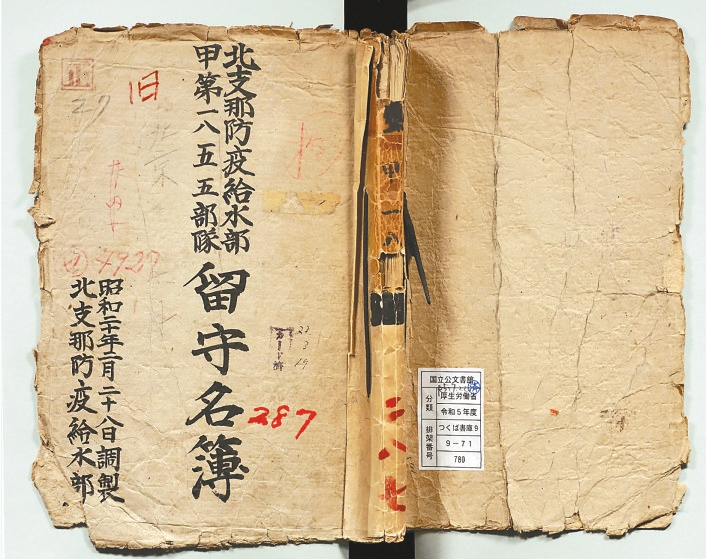 北支那防疫給水部
甲第一八五五部隊
留守名簿
昭和二十年二月二十八日調製
北支那防疫給水部
旧
27
4927
287
22
3
29
カード済
甲一八
二八七
国立公文書館
分類
厚生労働省
令和5年度
排架番号
つくば書庫9
9-71
780